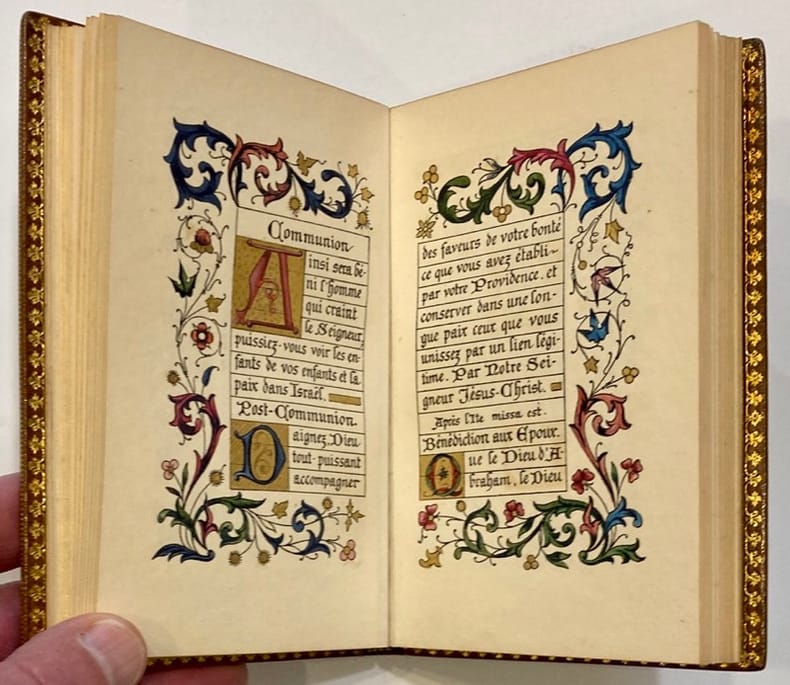 Communion
Ainsi sera bé-
ni l'homme
qui craint
le Seigneur,
puissiez-vous voir les en-
fants de vos enfants et la
paix dans Israël.
Post-Communion.
Daignez, Dieu
tout-puissant
accompagner
des faveurs de votre bonté
ce que vous avez établi
par votre Providence, et
conserver dans une lon-
gue paix ceux que vous
unissez par un lien légi-
time. Par Notre Sei-
gneur Jésus-Christ.
Après l'Ite missa est.
Bénédiction aux Epoux.
Que le Dieu d'A-
braham, le Dieu